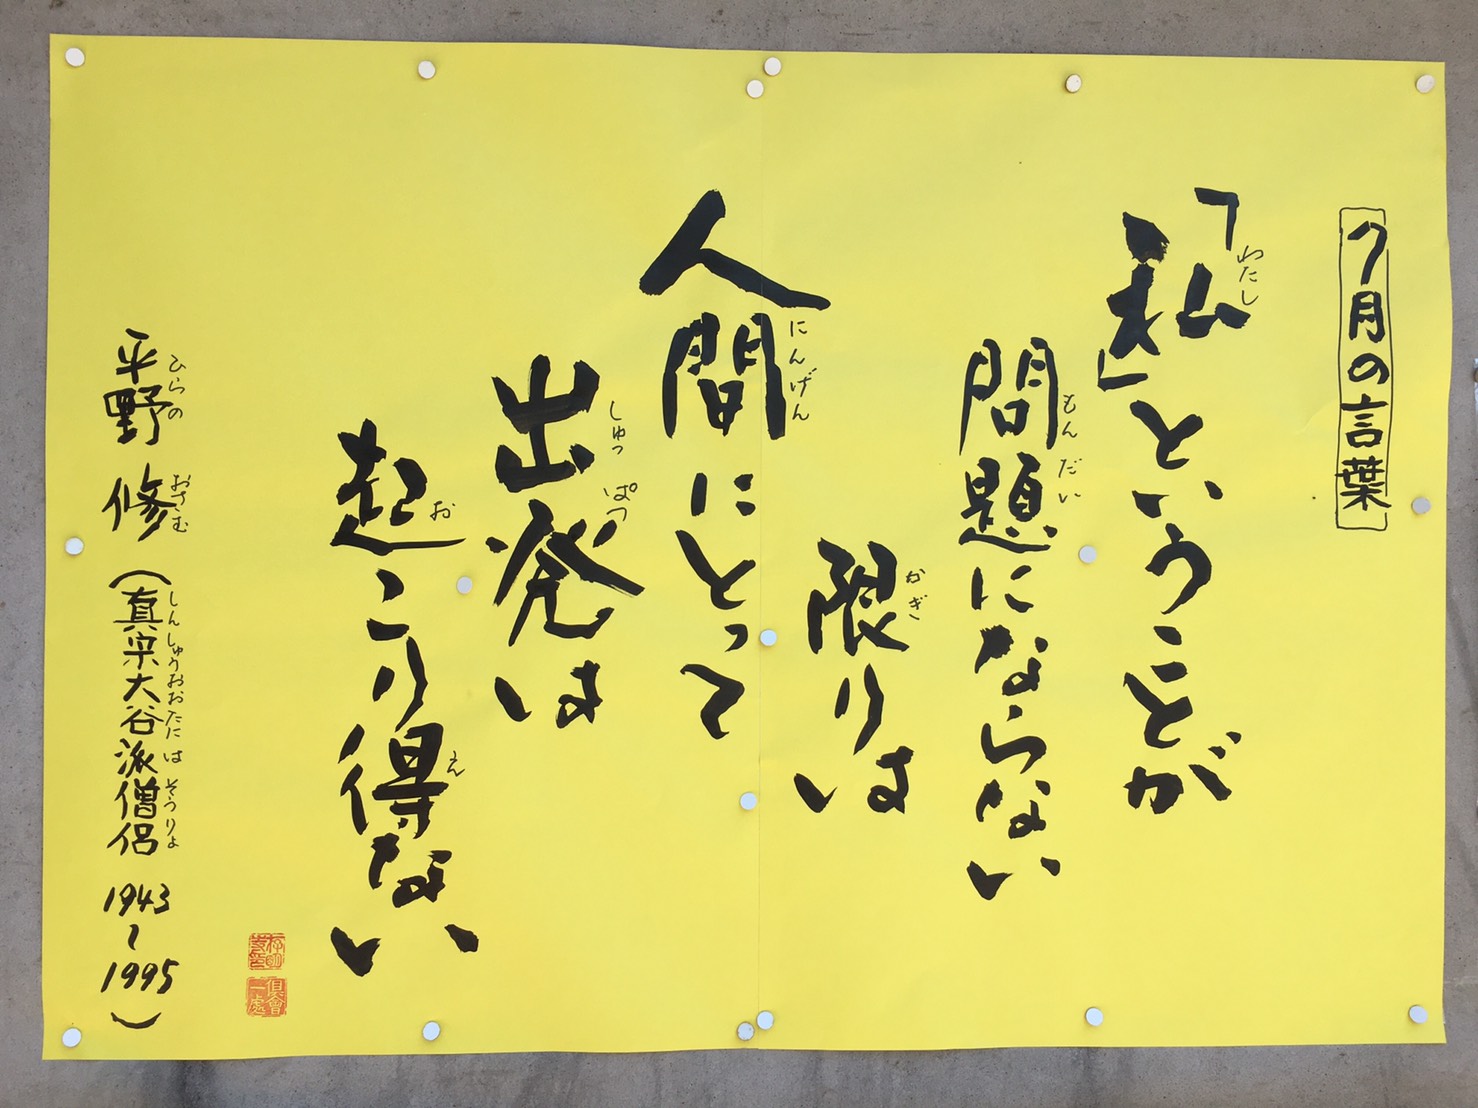 ７月の言葉
「私」ということが
わたし
問題にならない
もんだい
限りは
かぎ
人間にとって
にんげん
出発は
しゅっぱつ
起こり得ない
お え
平野 修（真宗大谷派僧侶 1943〜1995）
ひらの おさむ しんしゅうおおたには そうりょ
倶會一處